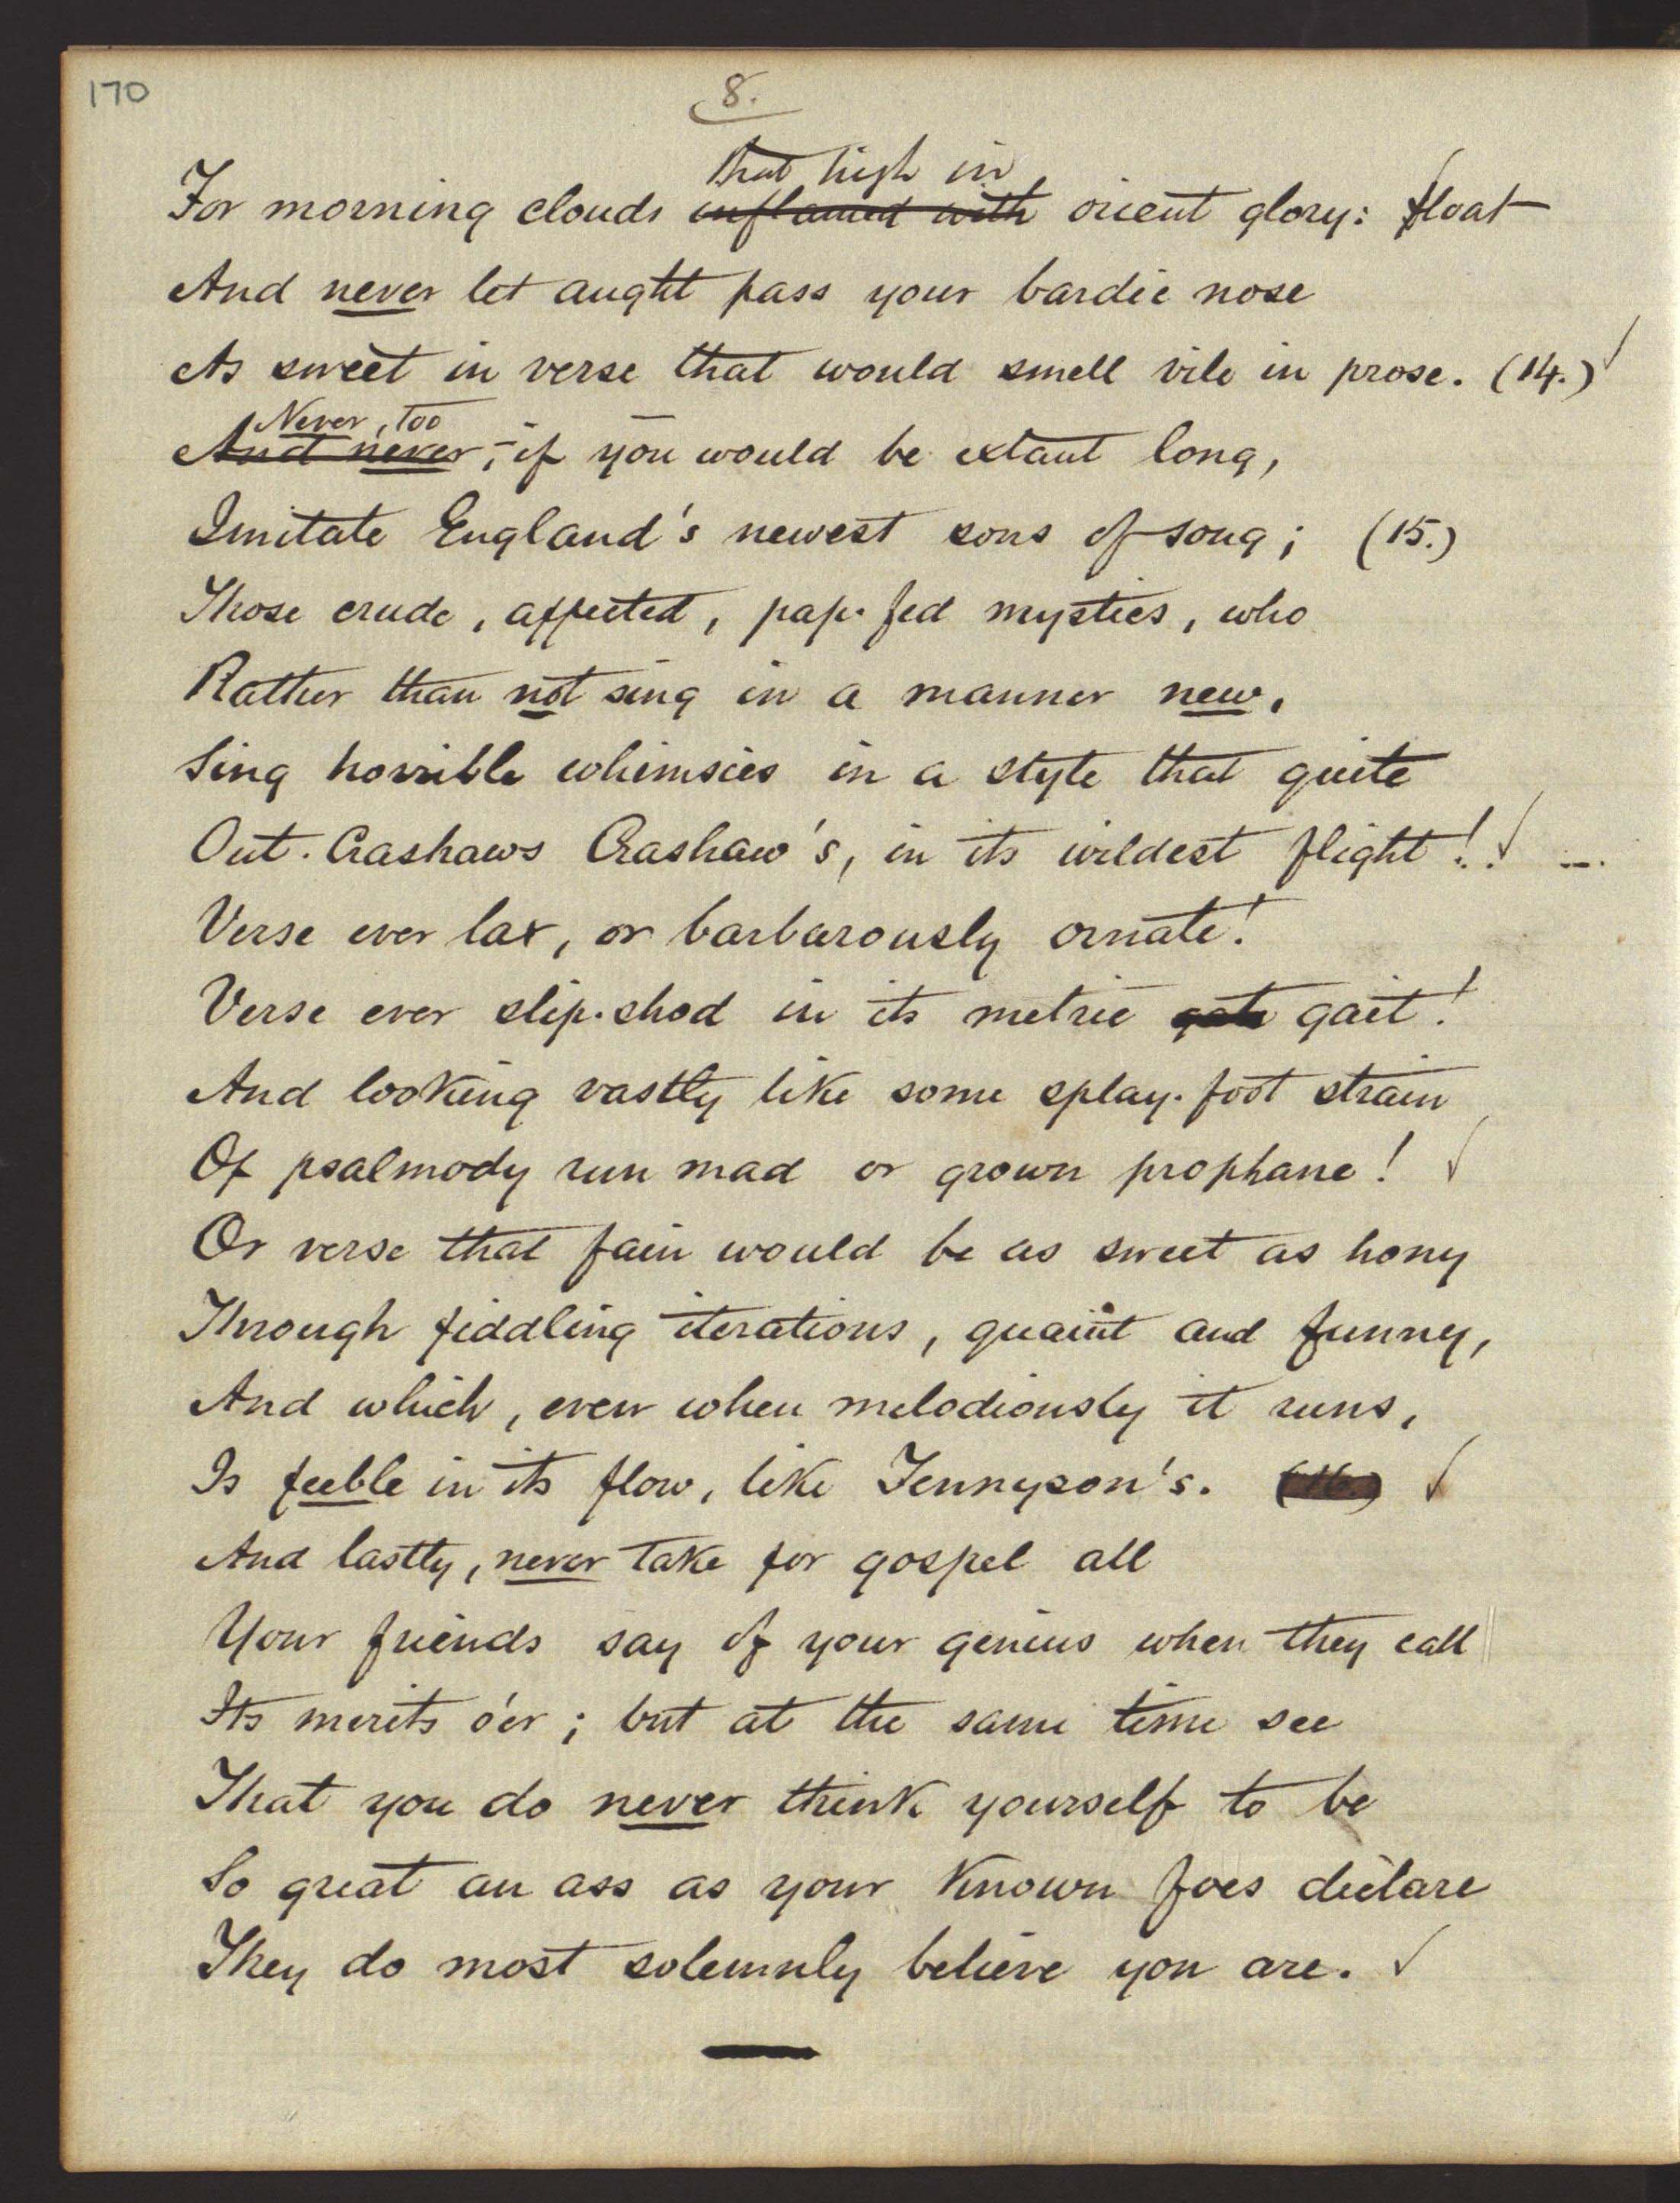 170
8.
that high in
For morning clouds inflamed with orient glory: float
And never let aught pass your bardic nose
As sweet in verse that would smell vile in prose. (14.)
Never, too
And never, if you would be extant long,
Imitate England's newest sons of song; (15.)
Those crude, affected, pap-fed mystics, who
Rather than not sing in a manner new,
Sing horrible whimsies in a style that quite
Out-Crashaws Crashaw's, in its wildest flight!
Verse ever lax, or barbarously ornate!
Verse ever slip-shod in its metric gate gait!
And looking vastly like some splay-foot strain
Of psalmody run mad or grown prophane!
Or verse that fain would be as sweet as hony
Through fiddling iterations, quaint and funny,
And which, even when melodiously it runs,
Is feeble in its flow, like Tennyson's. (16)
And lastly, never take for gospel all
Your friends say of your genius when they call
Its merits o'er; but at the same time see
That you do never think yourself to be
So great an ass as your known foes declare
They do most solemnly believe you are.